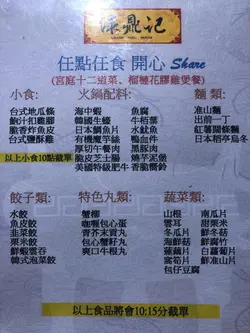 鼎記
任點任食 開心 Share
(宮庭十二道菜、榴槤花膠雞煲餐)
小食:
台式地瓜條
鮑汁扣雞腳
脆香炸魚皮
台式鹽酥雞
以上小食10點截單
火鍋配料:
海中蝦
韓國生蠔
日本鯛魚片
有機魔芋絲
厚切午餐肉
脆皮芝士腸
美國特級肥牛
魚腐
牛栢葉
水魷魚
鴨血
黑豚肉
燒芋泥堡
麵類:
淮山麵
出前一丁
紅薯闊條麵
日本稻亭烏冬
餃子類:
水餃
魚皮餃
韭菜餃
粟米餃
鮮蝦雲吞
韓式泡菜餃
特色丸類:
蟹柳
咖喱包心蛋
青芥末寶丸
包心蟹籽丸
爽口牛根丸
蔬菜類:
山根
雲耳
冬瓜片
海鮮菇
蓮藕片
窩筍片
包仔豆腐
南瓜片
甜粟米
生菜
鮮腐竹
白蘿蔔片
鮮淮山片
以上食品將會10:15分截單